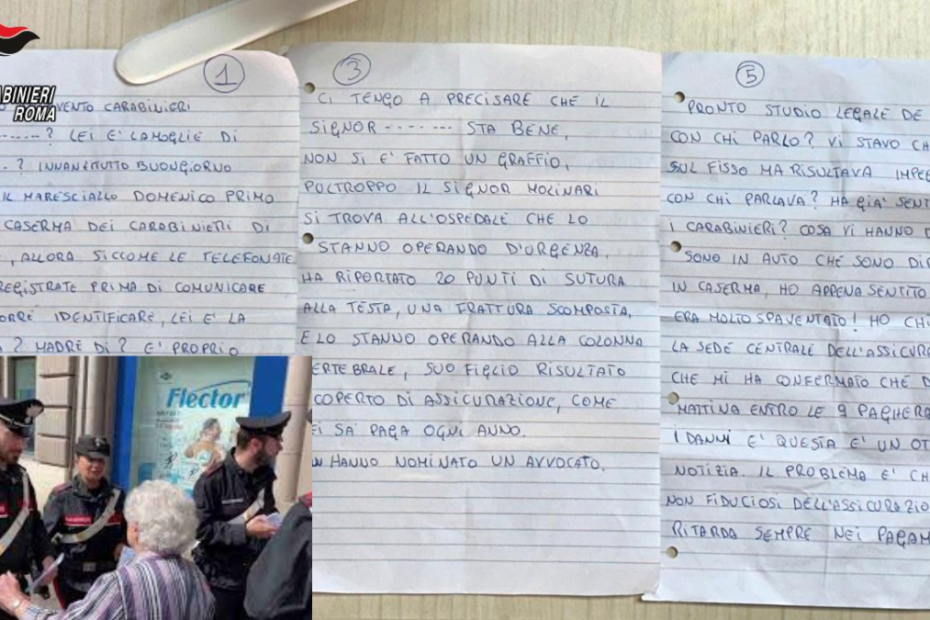 ABINIERI
ROMA
1
VENTO CARABINIERI
? LEI E' LA MOGLIE DI
? INNANZITUTTO BUONGIORNO
IL MARESCIALLO DOMENICO PRIMO
CASERMA DEI CARABINIERI DI
, ALLORA SICCOME LE TELEFONATE
REGISTRATE PRIMA DI COMUNICARE
ORREI IDENTIFICARE, LEI E' LA
? MADRE DI? E' PROPRIO
3
CI TENGO A PRECISARE CHE IL
SIGNOR ------- STA BENE,
NON SI E' FATTO UN GRAFFIO,
POLTROPPO IL SIGNOR MOLINARI
SI TROVA ALL'OSPEDALE CHE LO
STANNO OPERANDO D'URGENZA,
HA RIPORTATO 20 PUNTI DI SUTURA
ALLA TESTA, UNA FRATTURA SCOMPOSTA,
E LO STANNO OPERANDO ALLA COLONNA
ERTEBRALE, SUO FIGLIO RISULTATO
COPERTO DI ASSICURAZIONE, COME
EI SA' PAGA OGNI ANNO.
HANNO NOMINATO UN AVVOCATO.
5
PRONTO STUDIO LEGALE DE
CON CHI PARLO? VI STAVO CH
SUL FISSO MA RISULTAVA IMPE
CON CHI PARLAVA? HA GIA' SENT
I CARABINIERI? COSA VI HANNO D
SONO IN AUTO CHE SONO DIR
IN CASERMA, HO APPENA SENTITO
ERA MOLTO SPAVENTATO! HO CHI
LA SEDE CENTRALE DELL'ASSICURA
CHE MI HA CONFERMATO CHE D
MATTINA ENTRO LE 9 PAGHERA
I DANNI E' QUESTA E' UN OT
NOTIZIA. IL PROBLEMA E' CH
NON FIDUCIOSI DELL'ASSICURAZIO
RITARDA SEMPRE NEI PAGAM
Flector